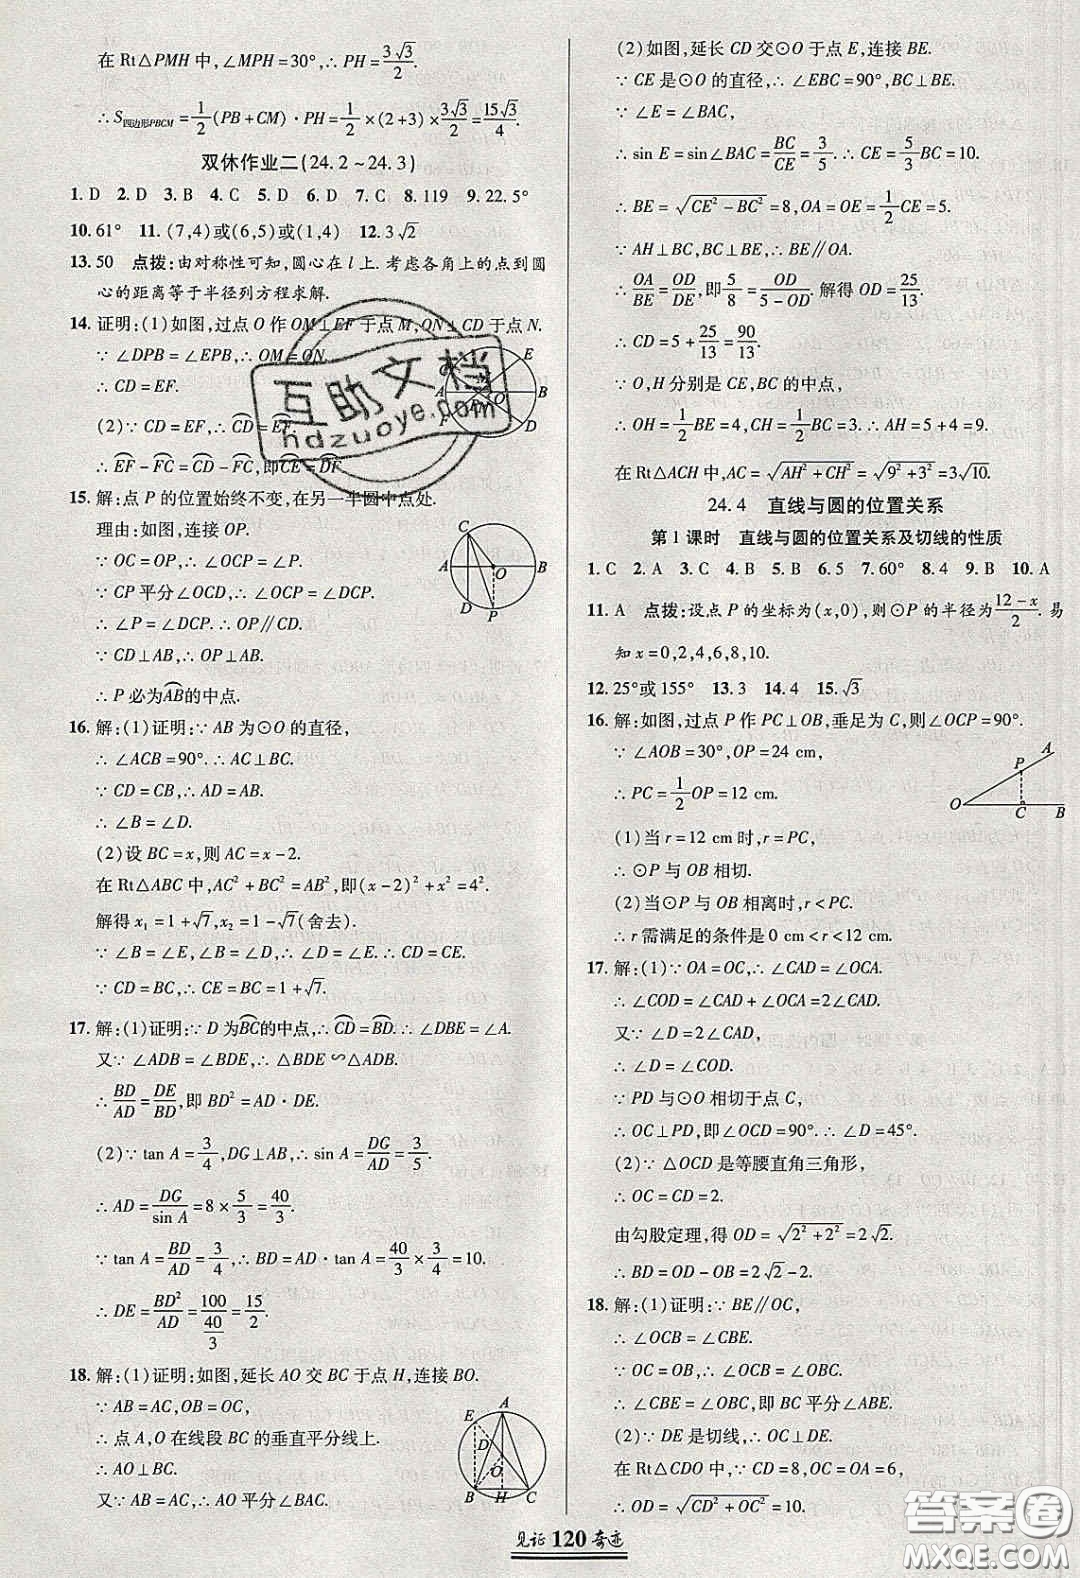 在 Rt△PMH 中,∠MPH=30°,∴PH=3√3/2.
∴S四边形PBCM=1/2(PB+CM)·PH=1/2×(2+3)×3√3/2=15√3/4.
双休作业二(24.2~24.3)
1. D 2. D 3. B 4. C 5. D 6. D 7. C 8. 119 9. 22.5°
10. 61° 11. (7,4)或(6,5)或(1,4) 12. 3√2
13. 50 点拨:由对称性可知,圆心在 l 上.考虑各角上的点到圆
心的距离等于半径列方程求解.
14. 证明:(1)如图,过点 O 作 OM⊥EF 于点 M,ON⊥CD 于点 N.
∵∠DPB=∠EPB,∴OM=ON.
∴CD=EF.
(2)∵CD=EF,∴CD=EF.
∴EF-FC=CD-FC,即CE=DF.
15. 解:点 P 的位置始终不变,在另一半圆中点处.
理由:如图,连接 OP.
∵OC=OP,∴∠P=∠OCP.
∵CP 平分∠OCD,∴∠OCP=∠DCP.
∴∠P=∠DCP.∴OP∥CD.
∵CD⊥AB,∴OP⊥AB.
∴P 必为AB的中点.
16. 解:(1)证明:∵AB 为⊙O 的直径,
∴∠ACB=90°.∴AC⊥BC.
∵CD=CB,∴AD=AB.
∴∠B=∠D.
(2)设 BC=x,则 AC=x-2.
在 Rt△ABC 中,AC²+BC²=AB²,即(x-2)²+x²=4².
解得 x₁=1+√7,x₂=1-√7(舍去).
∵∠B=∠E,∠B=∠D,∴∠D=∠E.∴CD=CE.
∵CD=BC,∴CE=BC=1+√7.
17. 解:(1)证明:∵D 为BC的中点,∴CD=BD.∴∠DBE=∠A.
又∵∠ADB=∠BDE,∴△BDE∽△ADB.
∴BD/AD=DE/BD,即 BD²=AD·DE.
(2)∵tan A=3/4,DG⊥AB,∴sin A=DG/AD=3/5.
∴AD=DG/sin A=8×5/3=40/3.
∵tan A=BD/AD=3/4,∴BD=AD·tan A=40/3×3/4=10.
∴DE=BD²/AD=100/(40/3)=15/2.
18. 解:(1)证明:如图,延长 AO 交 BC 于点 H,连接 BO.
∵AB=AC,OB=OC,
∴点 A,O 在线段 BC 的垂直平分线上.
∴AO⊥BC.
又∵AB=AC,∴AO 平分∠BAC.
(2)如图,延长 CD 交⊙O 于点 E,连接 BE.
∵CE 是⊙O 的直径,∴∠EBC=90°,BC⊥BE.
∵∠E=∠BAC,
∴sin E=sin∠BAC=BC/CE=3/5.∴CE=5/3BC=10.
∴BE=√(CE²-BC²)=8,OA=OE=1/2CE=5.
∵AH⊥BC,BC⊥BE,∴BE∥OA.
∴OA/BE=OD/DE,即5/8=OD/(5-OD).解得 OD=25/13.
∴CD=5+25/13=90/13.
∵O,H 分别是 CE,BC 的中点,
∴OH=1/2BE=4,CH=1/2BC=3.∴AH=5+4=9.
在 Rt△ACH 中,AC=√(AH²+CH²)=√(9²+3²)=3√10.
24.4 直线与圆的位置关系
第 1 课时 直线与圆的位置关系及切线的性质
1. C 2. A 3. C 4. B 5. B 6. 5 7. 60° 8. 4 9. B 10. A
11. A 点拨:设点 P 的坐标为(x,0),则⊙P 的半径为(12-x)/2.易
知 x=0,2,4,6,8,10.
12. 25°或 155° 13. 3 14. 4 15. √3
16. 解:如图,过点 P 作 PC⊥OB,垂足为 C,则∠OCP=90°.
∵∠AOB=30°,OP=24 cm,
∴PC=1/2OP=12 cm.
(1)当 r=12 cm 时,r=PC,
∴⊙P 与 OB 相切.
(2)当⊙P 与 OB 相离时,r<PC.
∴r 需满足的条件是 0 cm<r<12 cm.
17. 解:(1)∵OA=OC,∴∠CAD=∠OCA.
∴∠COD=∠CAD+∠OCA=2∠CAD.
又∵∠D=2∠CAD,
∴∠D=∠COD.
∵PD 与⊙O 相切于点 C,
∴OC⊥PD,即∠OCD=90°.∴∠D=45°.
(2)∵△OCD 是等腰直角三角形,
∴OC=CD=2.
由勾股定理,得 OD=√(2²+2²)=2√2.
∴BD=OD-OB=2√2-2.
18. 解:(1)证明:∵BE∥OC,
∴∠OCB=∠CBE.
∵OC=OB,∴∠OCB=∠OBC.
∴∠CBE=∠OBC,即 BC 平分∠ABE.
(2)∵DE 是切线,∴OC⊥DE.
在 Rt△CDO 中,∵CD=8,OC=OA=6,
∴OD=√(CD²+OC²)=10.
见证 120 奇迹
互助文档
hdzuoye.com
答案圈
MXQE.COM